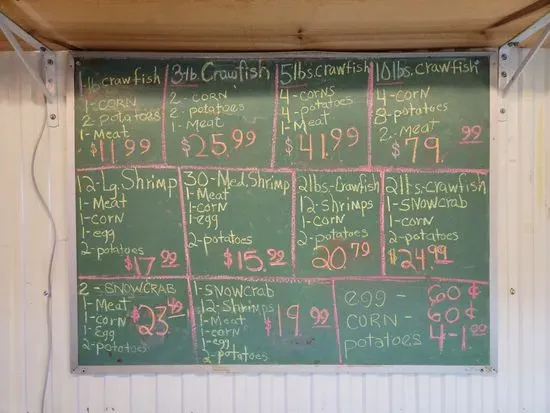 1-lb. crawfish
1-CORN
2 potatoes
1-Meat
$11.99
3-lb. Crawfish
2-CORN
2-potatoes
1-Meat
$25.99
5 lbs. crawfish
4-CORNS
4-potatoes
1-Meat
$41.99
10 lbs. crawfish
4-CORN
8-potatoes
2-meat
$79.99
12-Lg. Shrimp
1-Meat
1-corn
1-egg
2-potatoes
$17.99
30-Med. Shrimp
1-Meat
1-corn
1-egg
2-potatoes
$15.99
2 lbs-Crawfish
12-Shrimps
1-Corn
2-potatoes
20.79
2 lbs-crawfish
1-SNOWCrab
1-Corn
2-potatoes
$24.99
2-SNOWCRAB
1-Meat
1-CORN
1-Egg
2-potatoes
$23.49
1-SNOWCrab
12-Shrimps
1-Meat
1-corn
1-egg
2-potatoes
$19.99
egg - 60¢
CORN - 60¢
potatoes 4-1.00